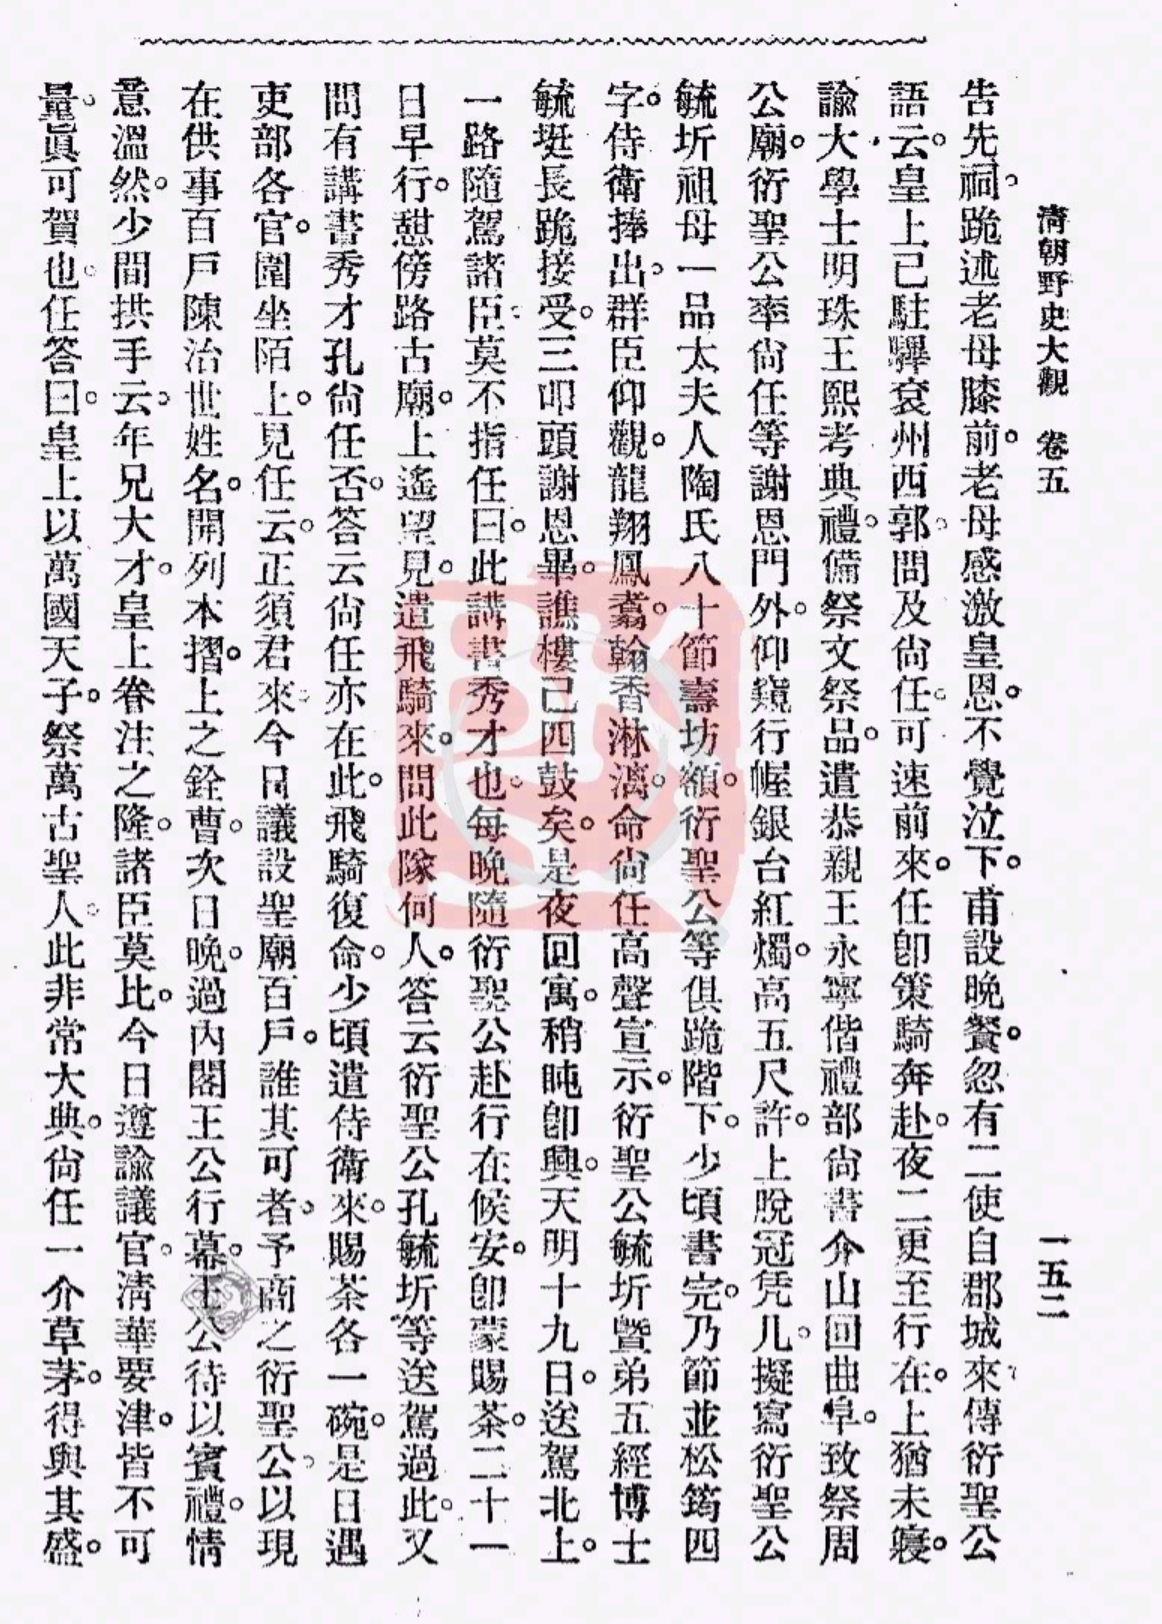 清朝野史大觀 卷五 一五二
告先祠。跪述老母膝前。老母感激皇恩。不覺泣下。甫設晚餐。忽有二使自郡城來。傳衍聖公
語云。皇上已駐驆袞州西郭。問及尙任。可速前來。任卽策騎奔赴。夜二更至行在。上猶未寢。
諭大學士明珠王熙考典禮。備祭文祭品。遣恭親王永寧偕禮部尙書介山回曲阜。致祭周
公廟。衍聖公率尙任等謝恩門外。仰窺行幄。銀台紅燭。高五尺許。上脫冠凭几。擬寫衍聖公
毓圻祖母一品太夫人陶氏八十節壽坊額。衍聖公等俱跪階下。少頃書完。乃節並松筠四
字。侍衛捧出。群臣仰觀。龍翔鳳翥。翰香淋漓。命尙任高聲宣示。衍聖公毓圻曁弟五經博士
毓埏長跪接受。三叩頭謝恩畢。譙樓已四鼓矣。是夜回寓。稍盹卽興。天明十九日。送駕北上。
一路隨駕諸臣。莫不指任曰。此講書秀才也。每晚隨衍聖公赴行在候安。卽蒙賜茶。二十一
日早行。憇傍路古廟。上遙望見。遣飛騎來。問此隊何人。答云衍聖公孔毓圻等送駕過此。又
問有講書秀才孔尙任否。答云尙任亦在此。飛騎復命。少頃遣侍衛來。賜茶各一碗。是日遇
吏部各官。圍坐陌上。見任云。正須君來。今日議設聖廟百戶。誰其可者。予商之衍聖公。以現
在供事百戶陳治世姓名。開列本摺。上之銓曹。次日晚。過內閣王公行幕。王公待以賓禮。情
意溫然。少間拱手云。年兄大才。皇上眷注之隆。諸臣莫比。今日遵諭議官。淸華要津。皆不可
量。眞可賀也。任答曰。皇上以萬國天子。祭萬古聖人。此非常大典。尙任一介草茅。得與其盛。